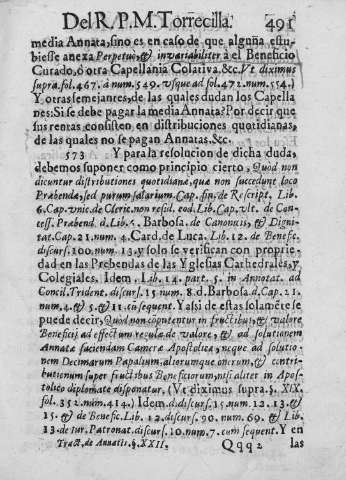 Del R. P. M. Torrecilla. 491
media Annata, sino es en caso de que alguna estu-
biesse anexa Perpetuò, & invariabiliter à el Beneficio
Curado, ò otra Capellania Colativa. &c. Vt diximus
supra. fol. 467. à num. 549. vsque ad fol. 472. num. 554.)
Y otras semejantes, de las quales dudan los Capella
nes: Si se debe pagar la media Annata? Por decir que
sus rentas consisten en distribuciones quotidianas,
de las quales no se pagan Annatas. &c.
573 Y para la resolucion de dicha duda,
debemos suponer como principio cierto, Quòd non
dicuntur distributiones quotidianæ, quæ non succedunt loco
Præbendæ, sed purum salarium. Cap. fin. de Rescript. Lib.
6. Cap. vnic. de Cleric. non resid. eod. Lib. Cap. vlt. de Con-
cess. Præbend. d. Lib. 6. Barbosa, de Canonicis, & Digni-
tat. Cap. 21. num. 4. Card. de Luca. Lib. 12. de Benefic.
discurs. 100. num. 13. y solo se verifican con proprie-
dad en las Prebendas de las Yglesias Cathedrales, y
Colegiales. Idem. Lib. 14. part. 5. in Annotat. ad
Concil. Trident. discurs. 15. num. 8. d. Barbosa. d. Cap. 21.
num. 4. & 5. & 11. cũ sequent. Y assi de estas solamẽte se
puede decir, Quòd non cõputentur in fructibus, & valore
Beneficij ad effectum regulæ de valore, & ad solutionem
Annatæ faciendam Cameræ Apostolicæ, neque ad solutio-
nem Decimarum Papalium, aliorumque onerum, & contri-
butionum super fructibus Beneficiorum, nisi aliter in Apos-
tolico diplomate disponatur. (Vt diximus supra. §. XIX.
fol. 352. num. 414.) Idem. d. discurs. 15. num. 12. 13. &
15. & de Benefic. Lib. 12. discurs. 90. num. 69. & Lib.
13. de Iur. Patronat. discurs. 10. num. 7. cum sequent. Y en
Tract. de Annatis. §. XXII. Qqq2 las